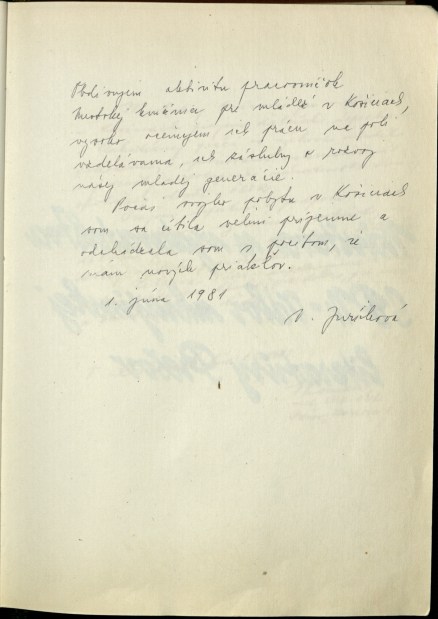 Obdivujem aktivitu pracovníčok
Mestskej knižnice pre mládež v Košiciach,
vysoko oceňujem ich prácu na poli
vzdelávania, ich zásluhy o rozvoj
našej mladej generácie.
Počas svojho pobytu v Košiciach
som sa cítila veľmi príjemne a
odchádzala som s pocitom, že
mám nových priateľov.
1. júna 1981